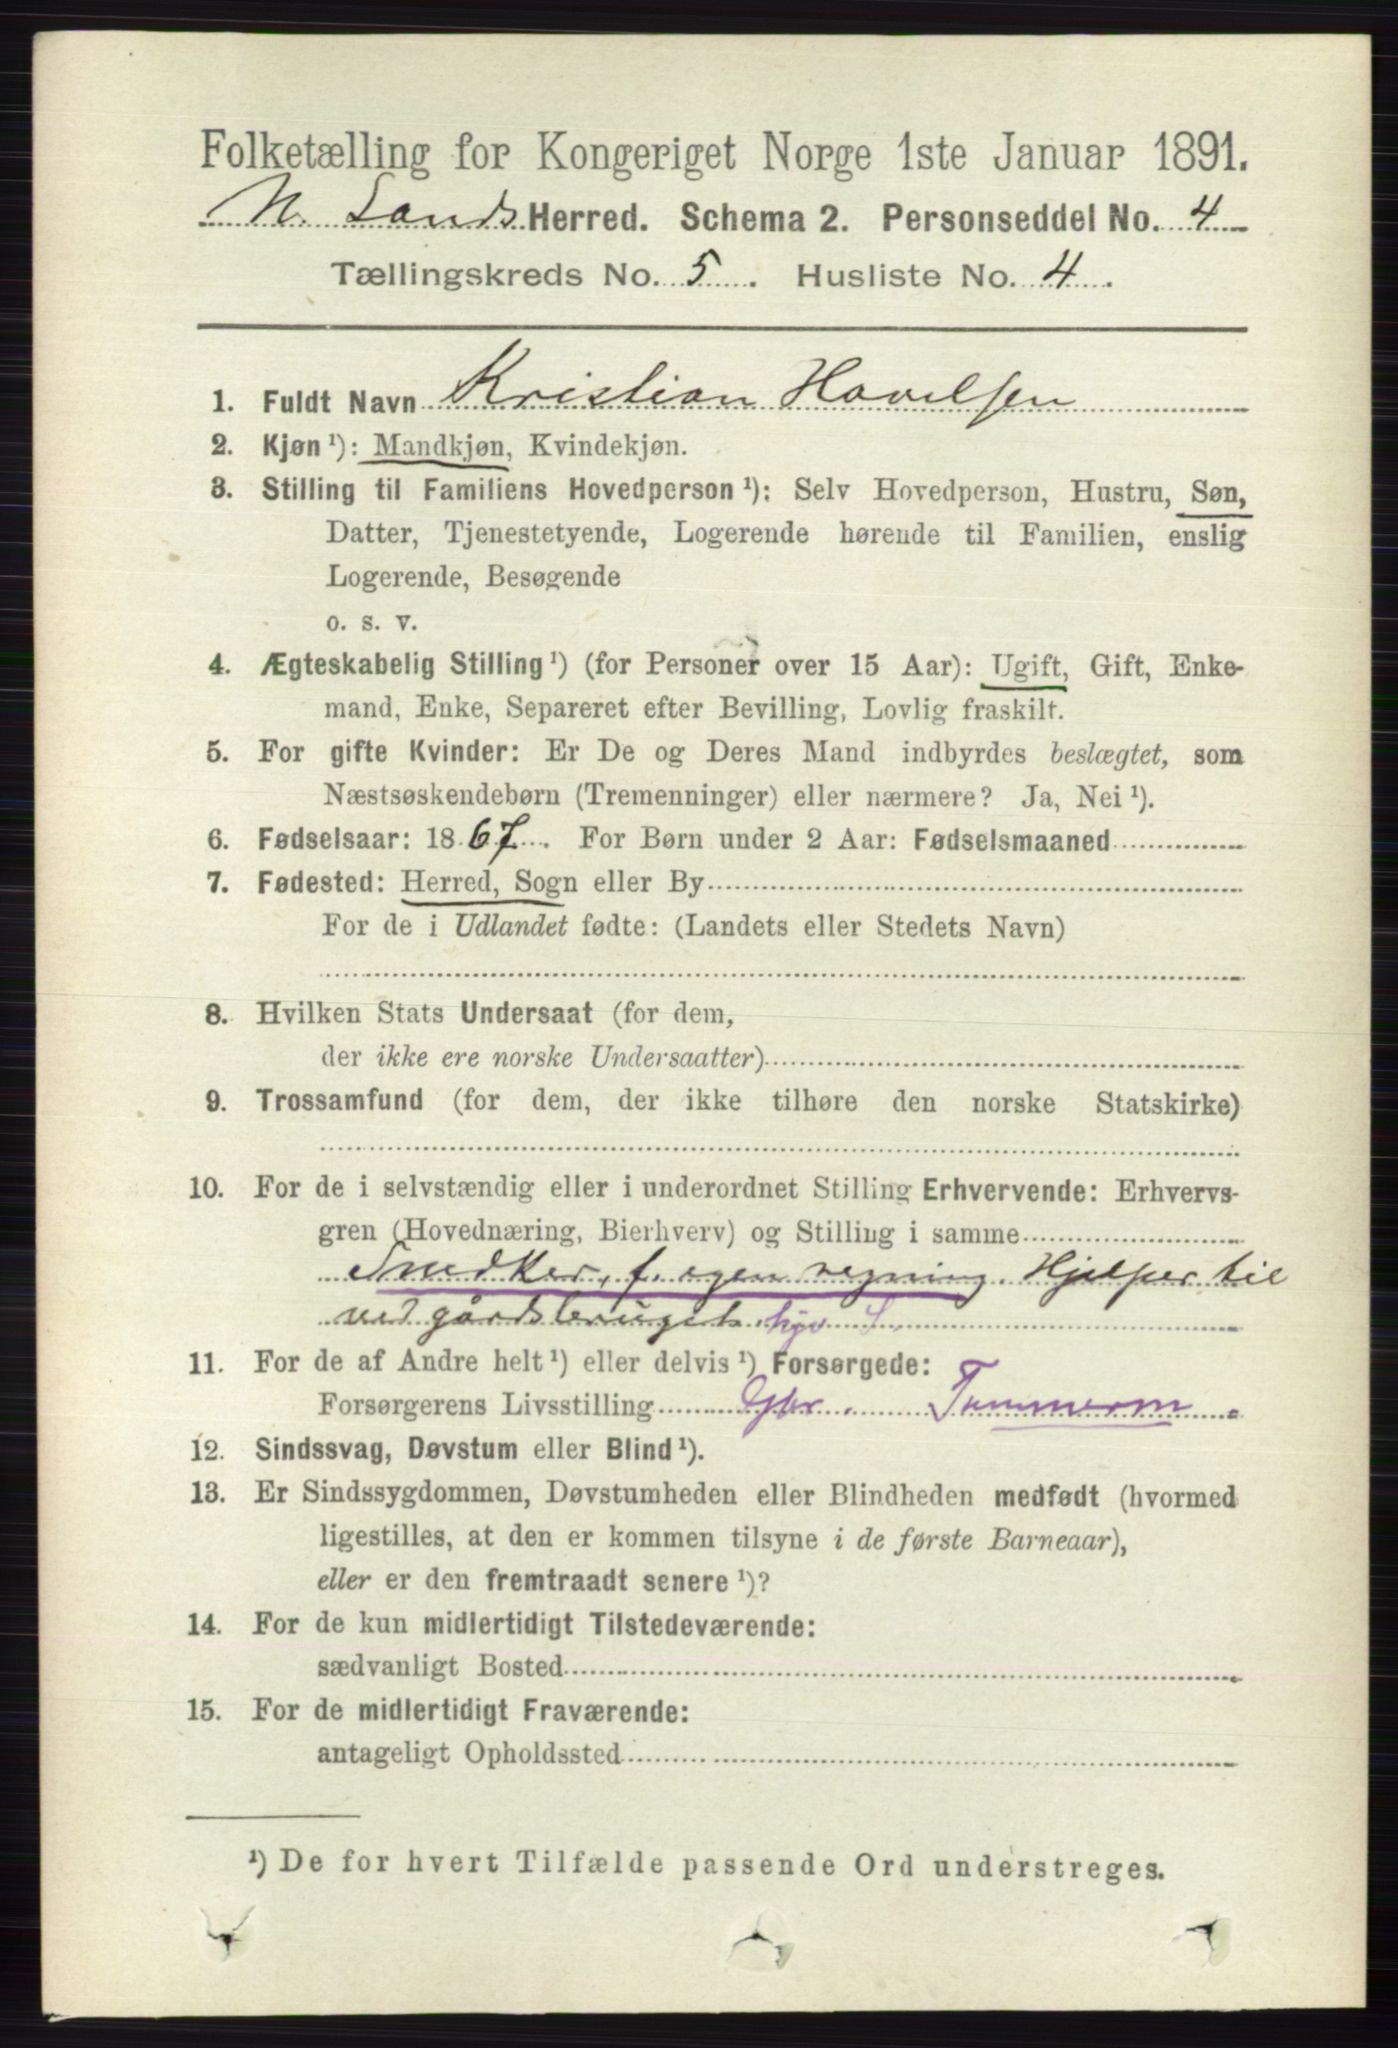 Folketælling for Kongeriget Norge 1ste Januar 1891.
N. Lands Herred. Schema 2. Personseddel No. 4
Tællingskreds No. 5. Husliste No. 4.
1. Fuldt Navn Kristian Hovelsen
2. Kjøn ¹): Mandkjøn, Kvindekjøn.
3. Stilling til Familiens Hovedperson ¹): Selv Hovedperson, Hustru, Søn,
Datter, Tjenestetyende, Logerende hørende til Familien, enslig
Logerende, Besøgende
o. s. v.
4. Ægteskabelig Stilling ¹) (for Personer over 15 Aar): Ugift, Gift, Enke-
mand, Enke, Separeret efter Bevilling, Lovlig fraskilt.
5. For gifte Kvinder: Er De og Deres Mand indbyrdes beslægtet, som
Næstsøskendebørn (Tremenninger) eller nærmere? Ja, Nei ¹).
6. Fødselsaar: 1867. For Børn under 2 Aar: Fødselsmaaned
7. Fødested: Herred, Sogn eller By
For de i Udlandet fødte: (Landets eller Stedets Navn)
8. Hvilken Stats Undersaat (for dem,
der ikke ere norske Undersaatter)
9. Trossamfund (for dem, der ikke tilhøre den norske Statskirke)
10. For de i selvstændig eller i underordnet Stilling Erhvervende: Erhvervs-
gren (Hovednæring, Bierhverv) og Stilling i samme
Snedker, f. egen regning. Hjelper til
ved gårdsbruget. hjv S.
11. For de af Andre helt ¹) eller delvis ¹) Forsørgede:
Forsørgerens Livsstilling Gbr. Tømmerm.
12. Sindssvag, Døvstum eller Blind ¹).
13. Er Sindssygdommen, Døvstumheden eller Blindheden medfødt (hvormed
ligestilles, at den er kommen tilsyne i de første Barneaar),
eller er den fremtraadt senere ¹)?
14. For de kun midlertidigt Tilstedeværende:
sædvanligt Bosted
15. For de midlertidigt Fraværende:
antageligt Opholdssted
¹) De for hvert Tilfælde passende Ord understreges.